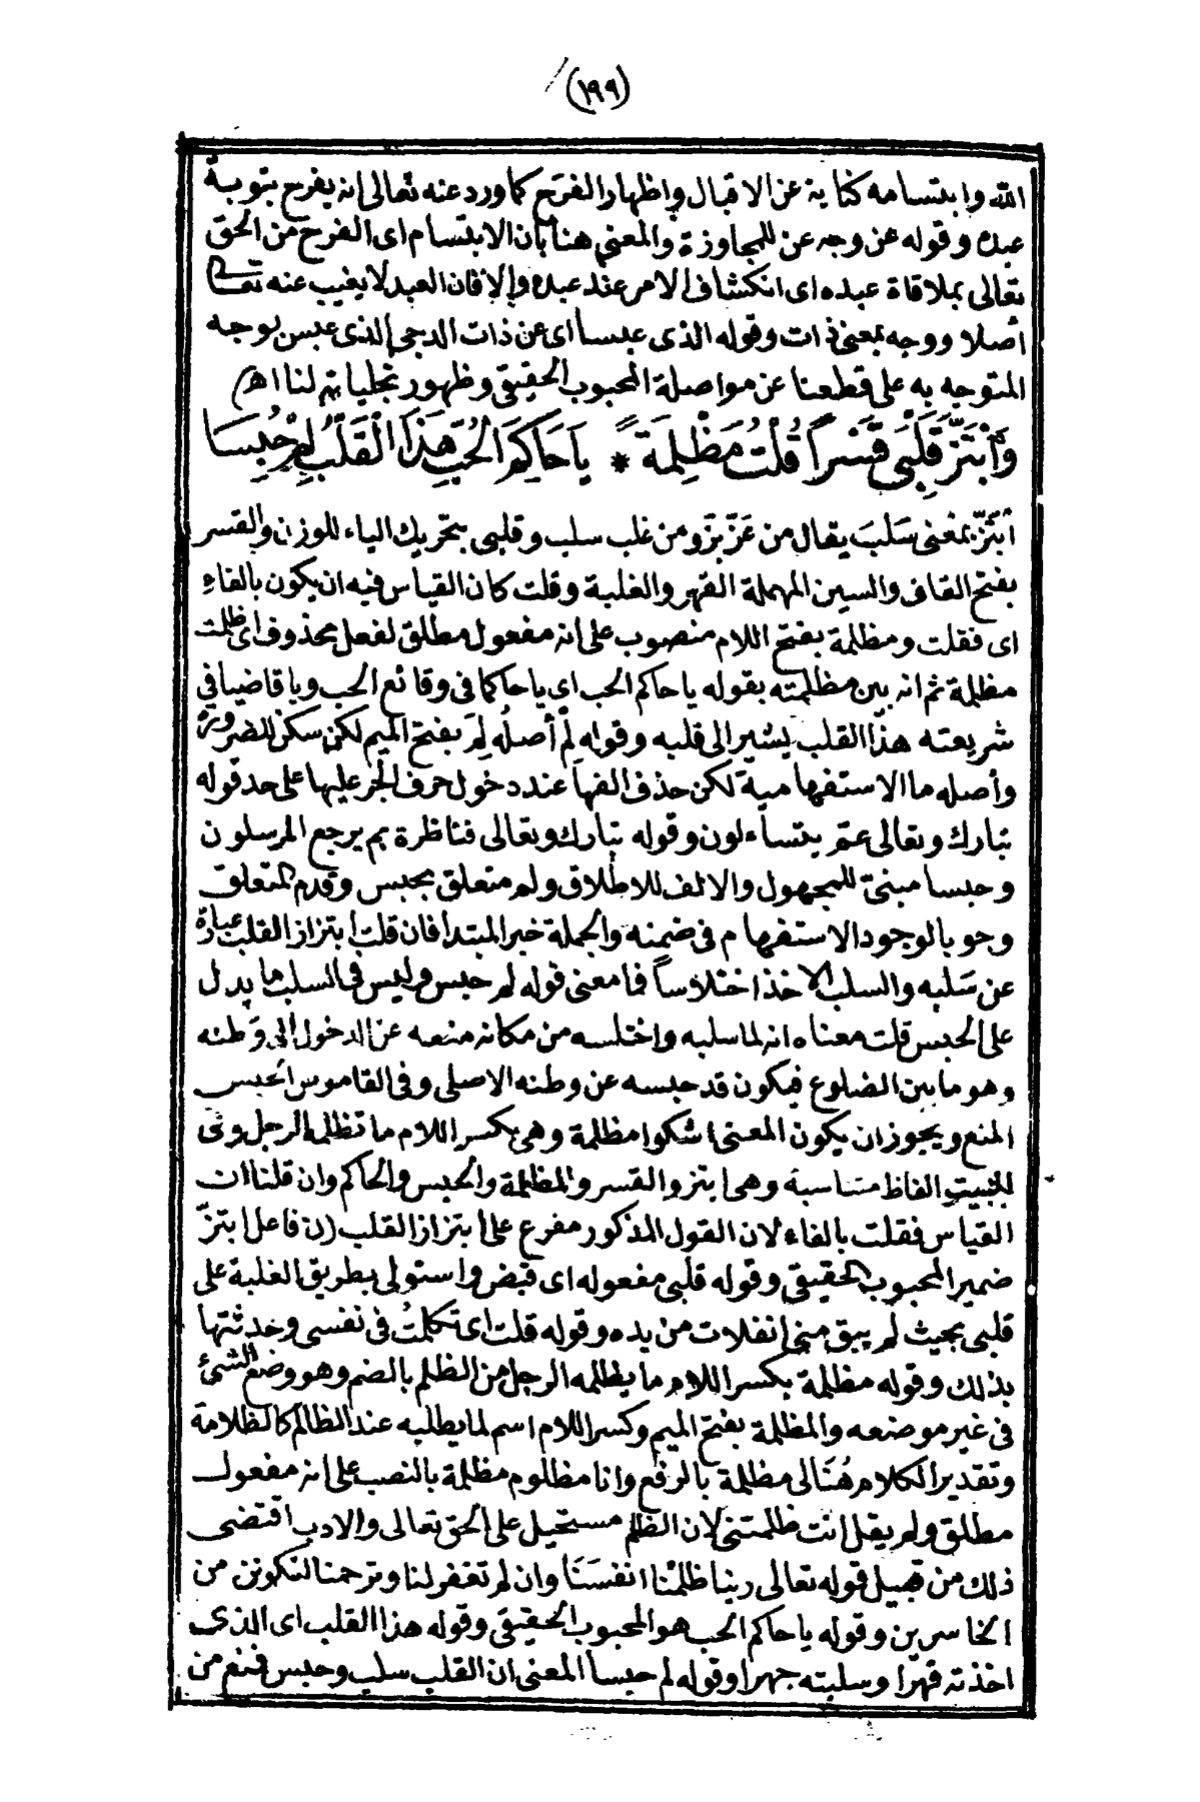 (١٩٩)
الله وابتسامه كناية عن الاقبال واظهار الفرح كما ورد عنه تعالى انه يفرح بتوبة
عبده وقوله عن وجه عن للمجاوزة والمعنى هنا بان الابتسام اى الفرح من الحق
تعالى بملاقاة عبده اى انكشاف الامر عند عبده والا فان العبد لا يغيب عنه تعالى
أصلا ووجه بمعنى ذات وقوله الذى عبسا اى عن ذات الدجى الذى عبس بوجه
المتوجه به على قطعنا عن مواصلة المحبوب الحقيقى وظهور تجلياته لنا اه
وَابْتَزَّ قَلْبِى قَسْراً قُلْتُ مَظْلِمَةً * يَا حَاكِمَ الحُبِّ هَذَا الْقَلْبُ لِمْ حُبِسَا
ابْتَزَّ بمعنى سَلَبَ يقال من عَزَّ بَزَّ ومن غلب سلب وقلبى بتحريك الياء للوزن والقسر
بفتح القاف والسين المهملة القهر والغلبة وقلت كان القياس فيه ان يكون بالفاء
اى فقلت ومظلمة بفتح اللام منصوب على انه مفعول مطلق لفعل محذوف اى ظلمت
مظلمة ثم انه بين مظلمته بقوله يا حاكم الحب اى يا حاكما فى وقائع الحب ويا قاضيا فى
شريعته هذا القلب يشير الى قلبه وقوله لِمْ أصلُه لِمَ بفتح الميم لكن سكن للضرورة
وأصله ما الاستفهامية لكن حذف الفها عند دخول حرف الجر عليها على حد قوله
تبارك وتعالى عمّ يتساءلون وقوله تبارك وتعالى فناظرة بم يرجع المرسلون
وحبسا مبنىّ للمجهول والالف للاطلاق ولم متعلق بحبس وقدم المتعلق
وجوبا لوجود الاستفهام فى ضمنه والجملة خبر المبتدا فان قلت ابتزاز القلب عبارة
عن سَلبه والسلب الاخذ اختلاساً فما معنى قوله لم حبس وليس فى السلب ما يدل
على الحبس قلت معناه انه لما سلبه واختلسه من مكانه منعه عن الدخول الى وَطنه
وهو ما بين الضلوع فيكون قد حبسه عن وطنه الاصلى وفى القاموس الحبس
المنع ويجوز ان يكون المعنى اشكوا مظلمة وهى بكسر اللام ما تظلمه الرجل وفى
البيت الفاظ متناسبة وهى ابتز والقسر والمظلمة والحبس والحاكم وان قلنا ان
القياس فقلت بالفاء لان القول المذكور مفرع على ابتزاز القلب (ن) فاعل ابتزّ
ضمير المحبوب الحقيقى وقوله قلبى مفعوله اى قبض واستولى بطريق الغلبة على
قلبى بحيث لم يبق منى انفلات من يده وقوله قلت اى تكلمتُ فى نفسى وحدثتها
بذلك وقوله مظلمة بكسر اللام ما يظلمه الرجل من الظلم بالضم وهو وضع الشئ
فى غير موضعه والمظلمة بفتح الميم وكسر اللام اسم لما يطلبه عند الظالم كالظلامة
وتقدير الكلام هُنَا لى مظلمة بالرفع وانا مظلوم مظلمة بالنصب على انه مفعول
مطلق ولم يقل انت ظلمتنى لان الظلم مستحيل على الحق تعالى والادب اقتضى
ذلك من قبيل قوله تعالى ربنا ظلمْنَا انفسَنَا وان لم تغفر لنا وترحمنا لنكونن من
الخاسرين وقوله يا حاكم الحب هو المحبوب الحقيقى وقوله هذا القلب اى الذى
اخذته قهرًا وسلبته جهرا وقوله لم حبسا المعنى ان القلب سلب وحبس فمنع من